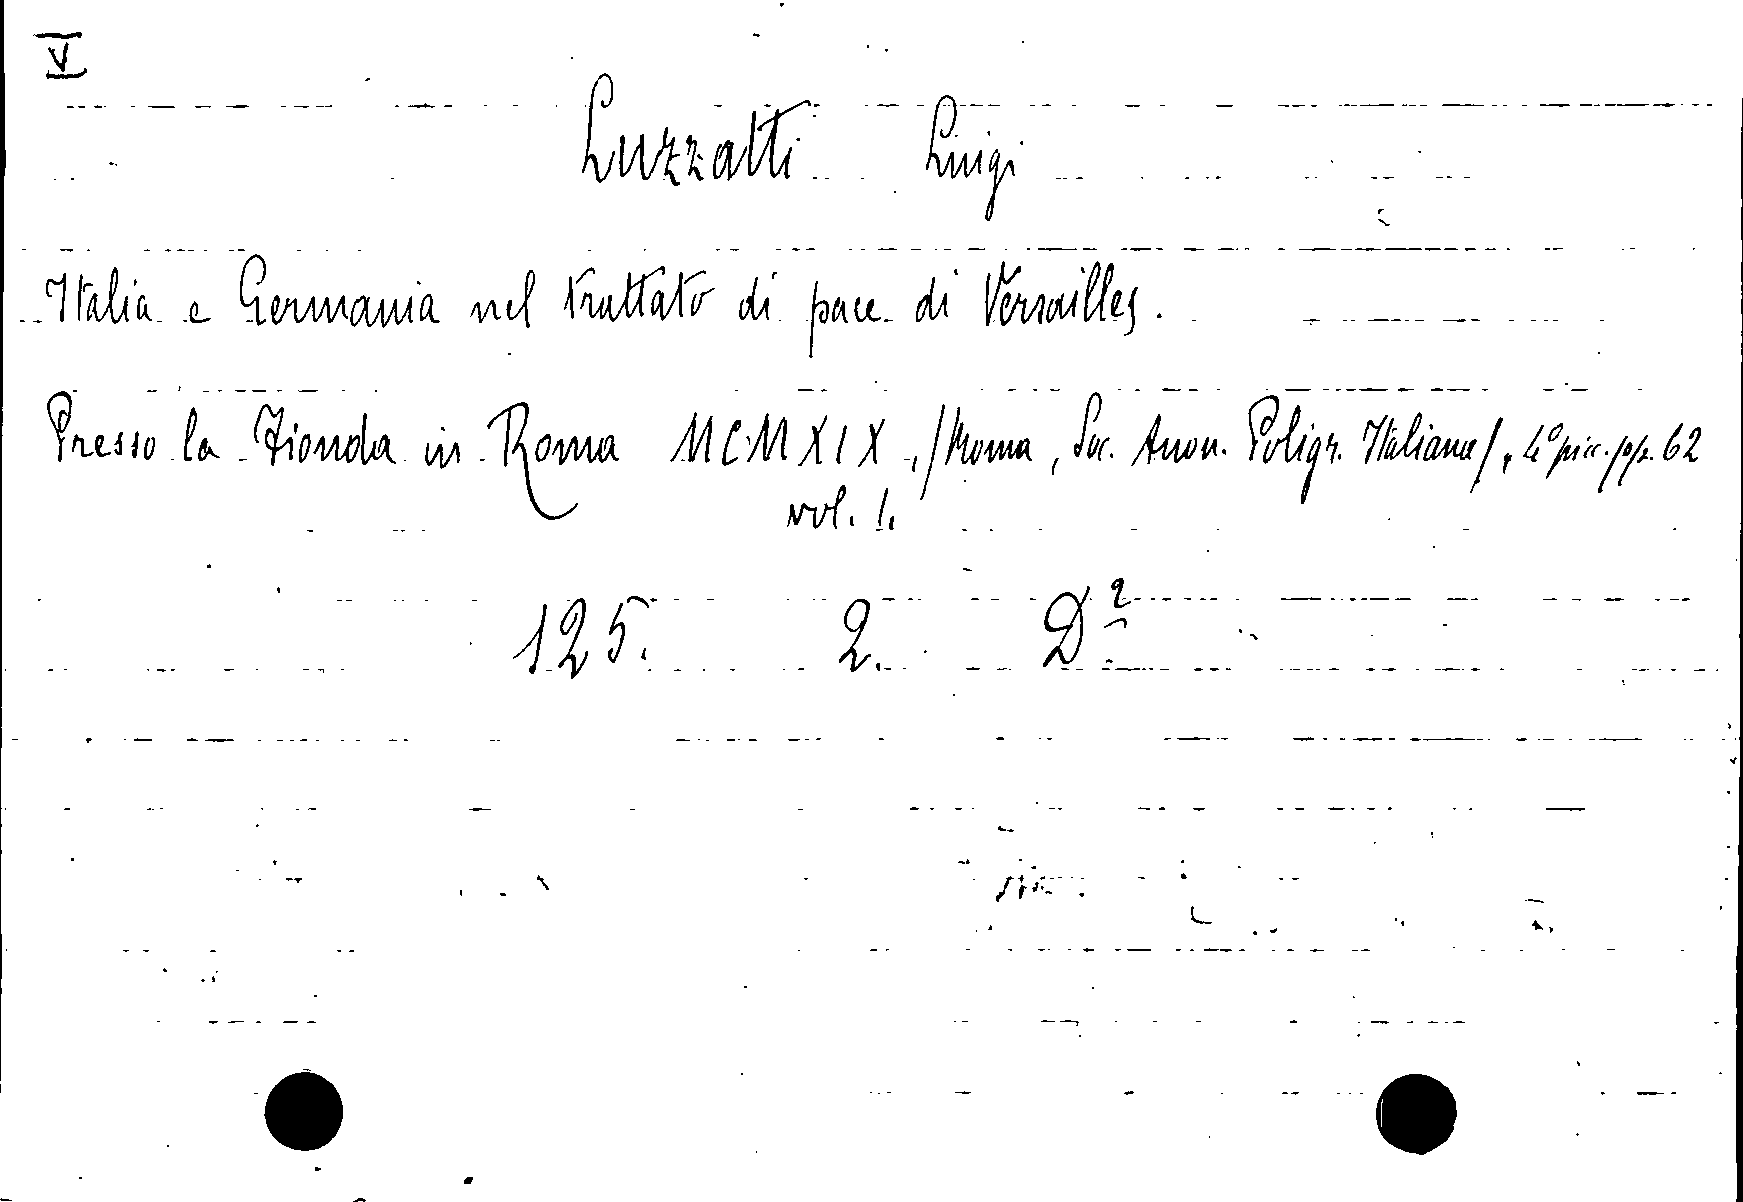 V
Luzzatti Luigi
Italia e Germania nel trattato di pace di Versailles.
Presso la Fionda in Roma MCMXIX, /Roma, Soc. Anon. Poligr. Italiana/, 4º picc. pp. 62
vol. 1.
125. 2. D²